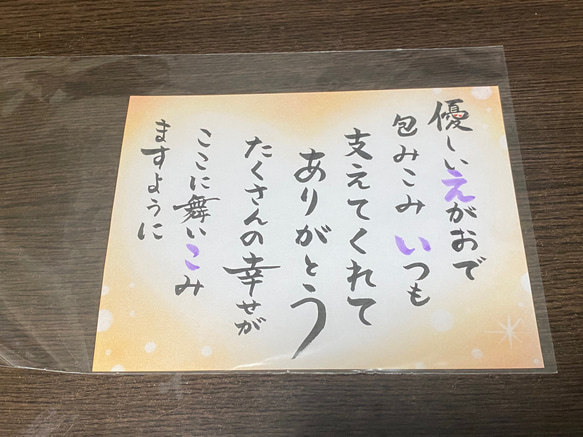 優しいえがおで
包みこみ いつも
支えてくれて
ありがとう
たくさんの幸せが
ここに舞いこみ
ますように